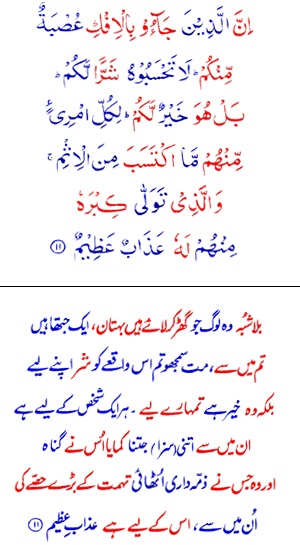 اِنَّ الَّذِيْنَ جَآءُوْ بِالْاِفْكِ عُصْبَةٌ
مِّنْكُمْ ؕ لَا تَحْسَبُوْهُ شَرًّا لَّكُمْ ؕ
بَلْ هُوَ خَيْرٌ لَّكُمْ ؕ لِكُلِّ امْرِئٍ
مِّنْهُمْ مَّا اكْتَسَبَ مِنَ الْاِثْمِ ۚ
وَالَّذِيْ تَوَلّٰى كِبْرَهٗ
مِنْهُمْ لَهٗ عَذَابٌ عَظِيْمٌ ﴿۱۱﴾
بلاشبُہ وہ لوگ جو گھڑ کر لائے ہیں بہتان، ایک جتھا ہیں
تم میں سے، مت سمجھو تم اس واقعے کو شر اپنے لیے
بلکہ وہ خیر ہے تمہارے لیے ۔ ہر ایک شخص کے لیے ہے
ان میں سے اتنی (سزا) جتنا کمایا اُس نے گناہ
اور وہ جس نے ذمّہ داری اُٹھائی تہمت کے بڑے حصّے کی
اُن میں سے، اس کے لیے ہے عذابِ عظیم ﴿۱۱﴾